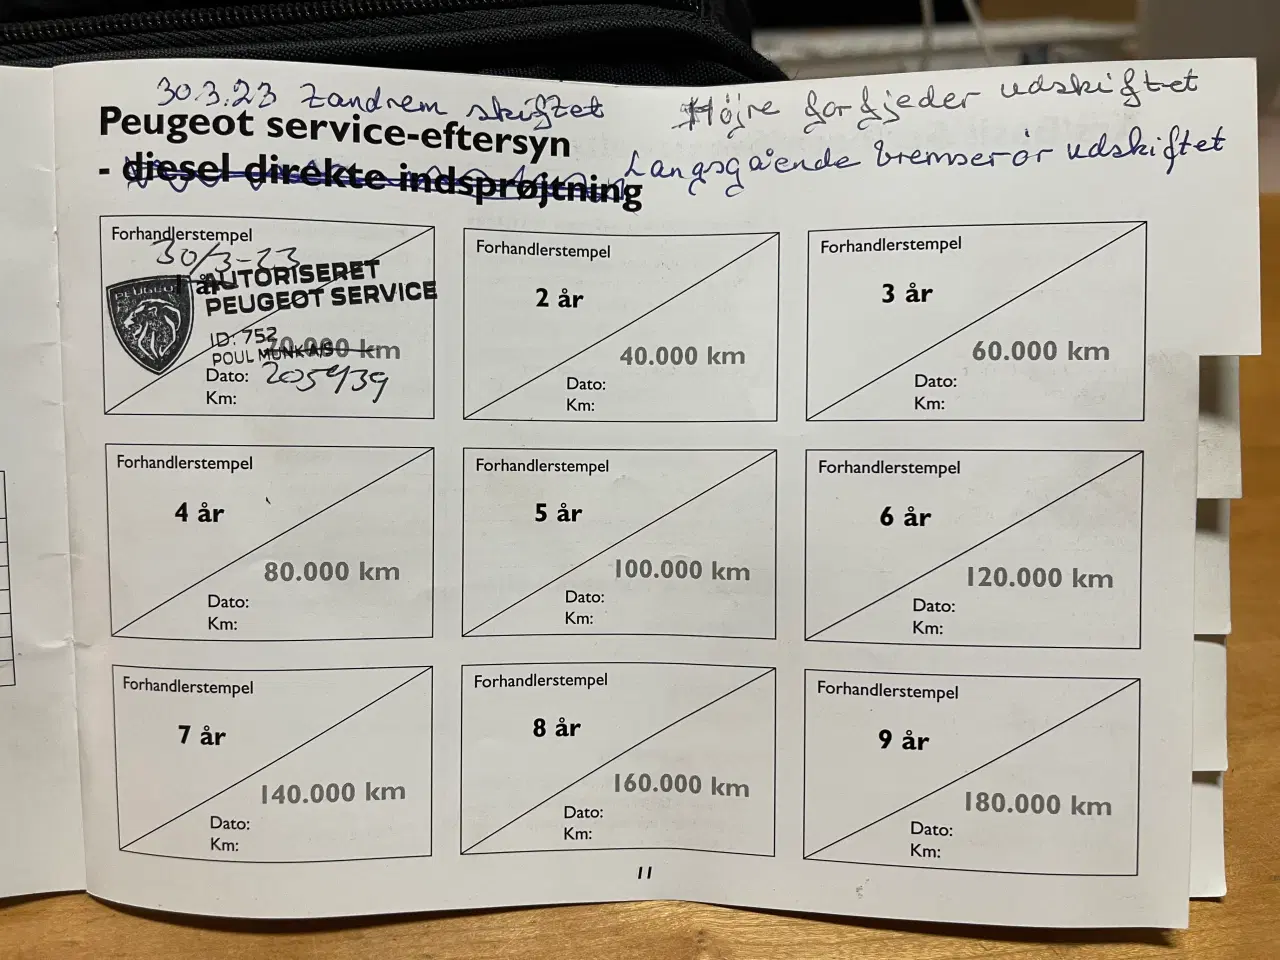 30.3.23 Tandrem skiftet
Højre forfjeder udskiftet
Peugeot service-eftersyn
- diesel direkte indsprøjtning
Langsgående bremserør udskiftet
Forhandlerstempel
30/3-23
1 år
AUTORISERET
PEUGEOT SERVICE
PEUGEOT
ID: 752
20.000 km
POUL MUNK A/S
Dato: 205439
Km:
Forhandlerstempel
2 år
40.000 km
Dato:
Km:
Forhandlerstempel
3 år
60.000 km
Dato:
Km:
Forhandlerstempel
4 år
80.000 km
Dato:
Km:
Forhandlerstempel
5 år
100.000 km
Dato:
Km:
Forhandlerstempel
6 år
120.000 km
Dato:
Km:
Forhandlerstempel
7 år
140.000 km
Dato:
Km:
Forhandlerstempel
8 år
160.000 km
Dato:
Km:
Forhandlerstempel
9 år
180.000 km
Dato:
Km:
11